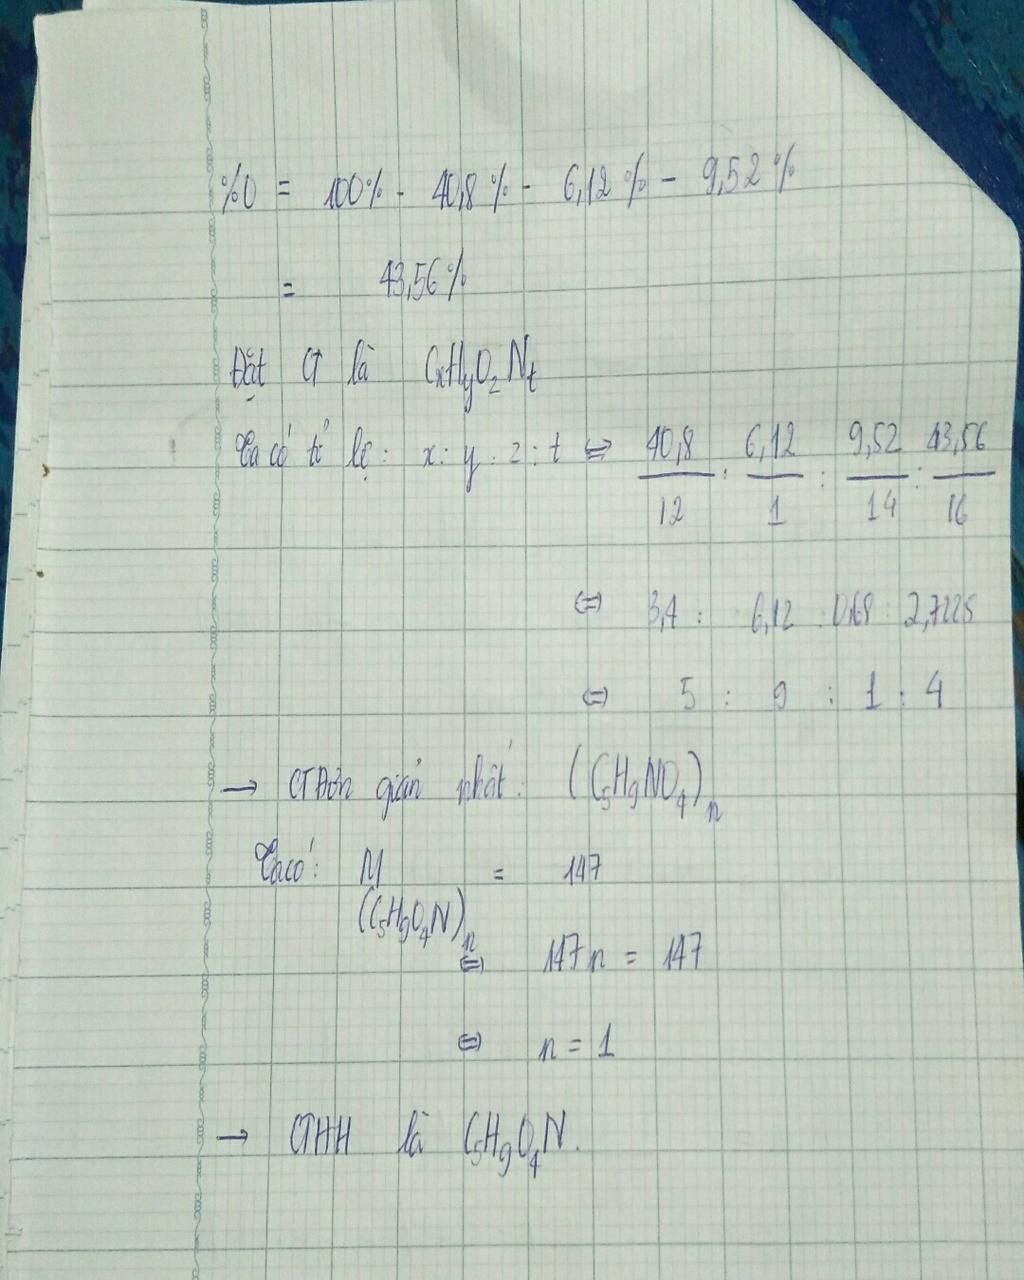 %O = 100% - 40,8% - 6,12% - 9,52%
= 43,56%
Đặt CT là CxHyOzNt
Ta có tỉ lệ: x : y : z : t ⇔ 40,8/12 : 6,12/1 : 9,52/14 : 43,56/16
⇔ 3,4 : 6,12 : 0,68 : 2,7225
⇔ 5 : 9 : 1 : 4
→ CTĐơn giản nhất: (C5H9NO4)n
Ta có: M (C5H9O4N)n = 147
⇔ 147n = 147
⇔ n = 1
→ CTHH là C5H9O4N.